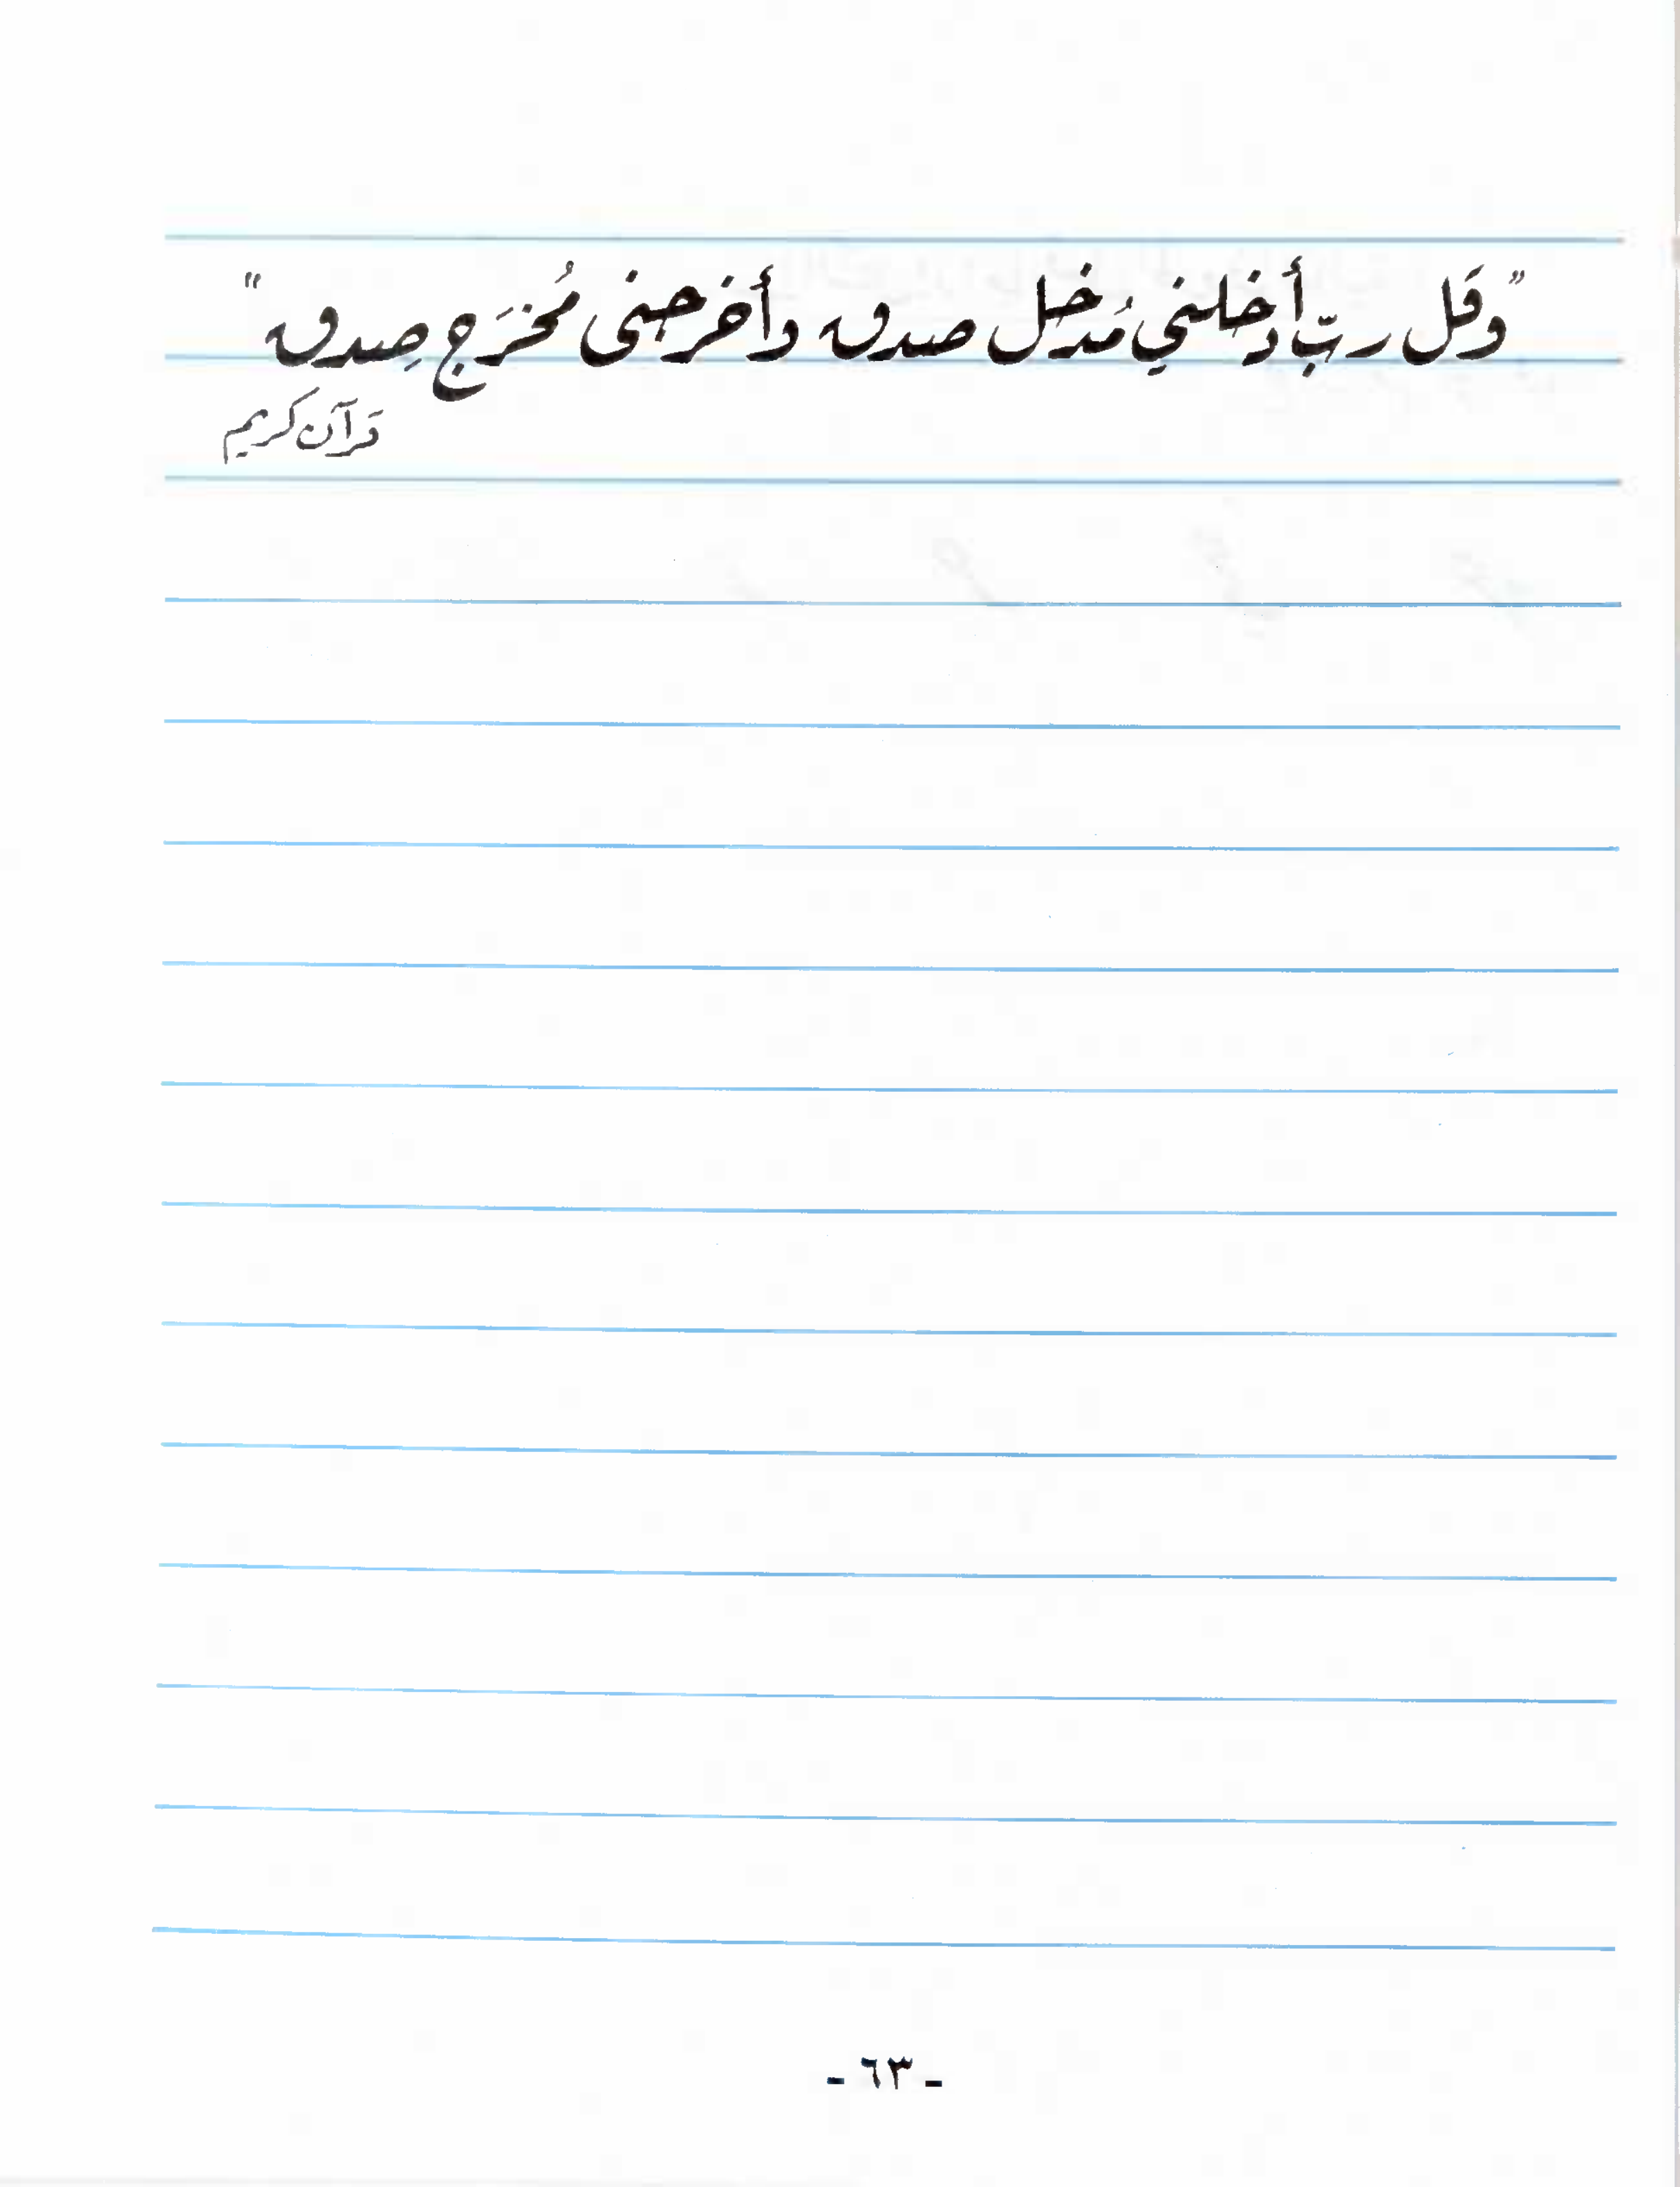 "وقَل ربّ أدخلني مُدخل صدق وأخرجنى مُخرَج صِدق"
قرآن كريم
- ٦٣ -